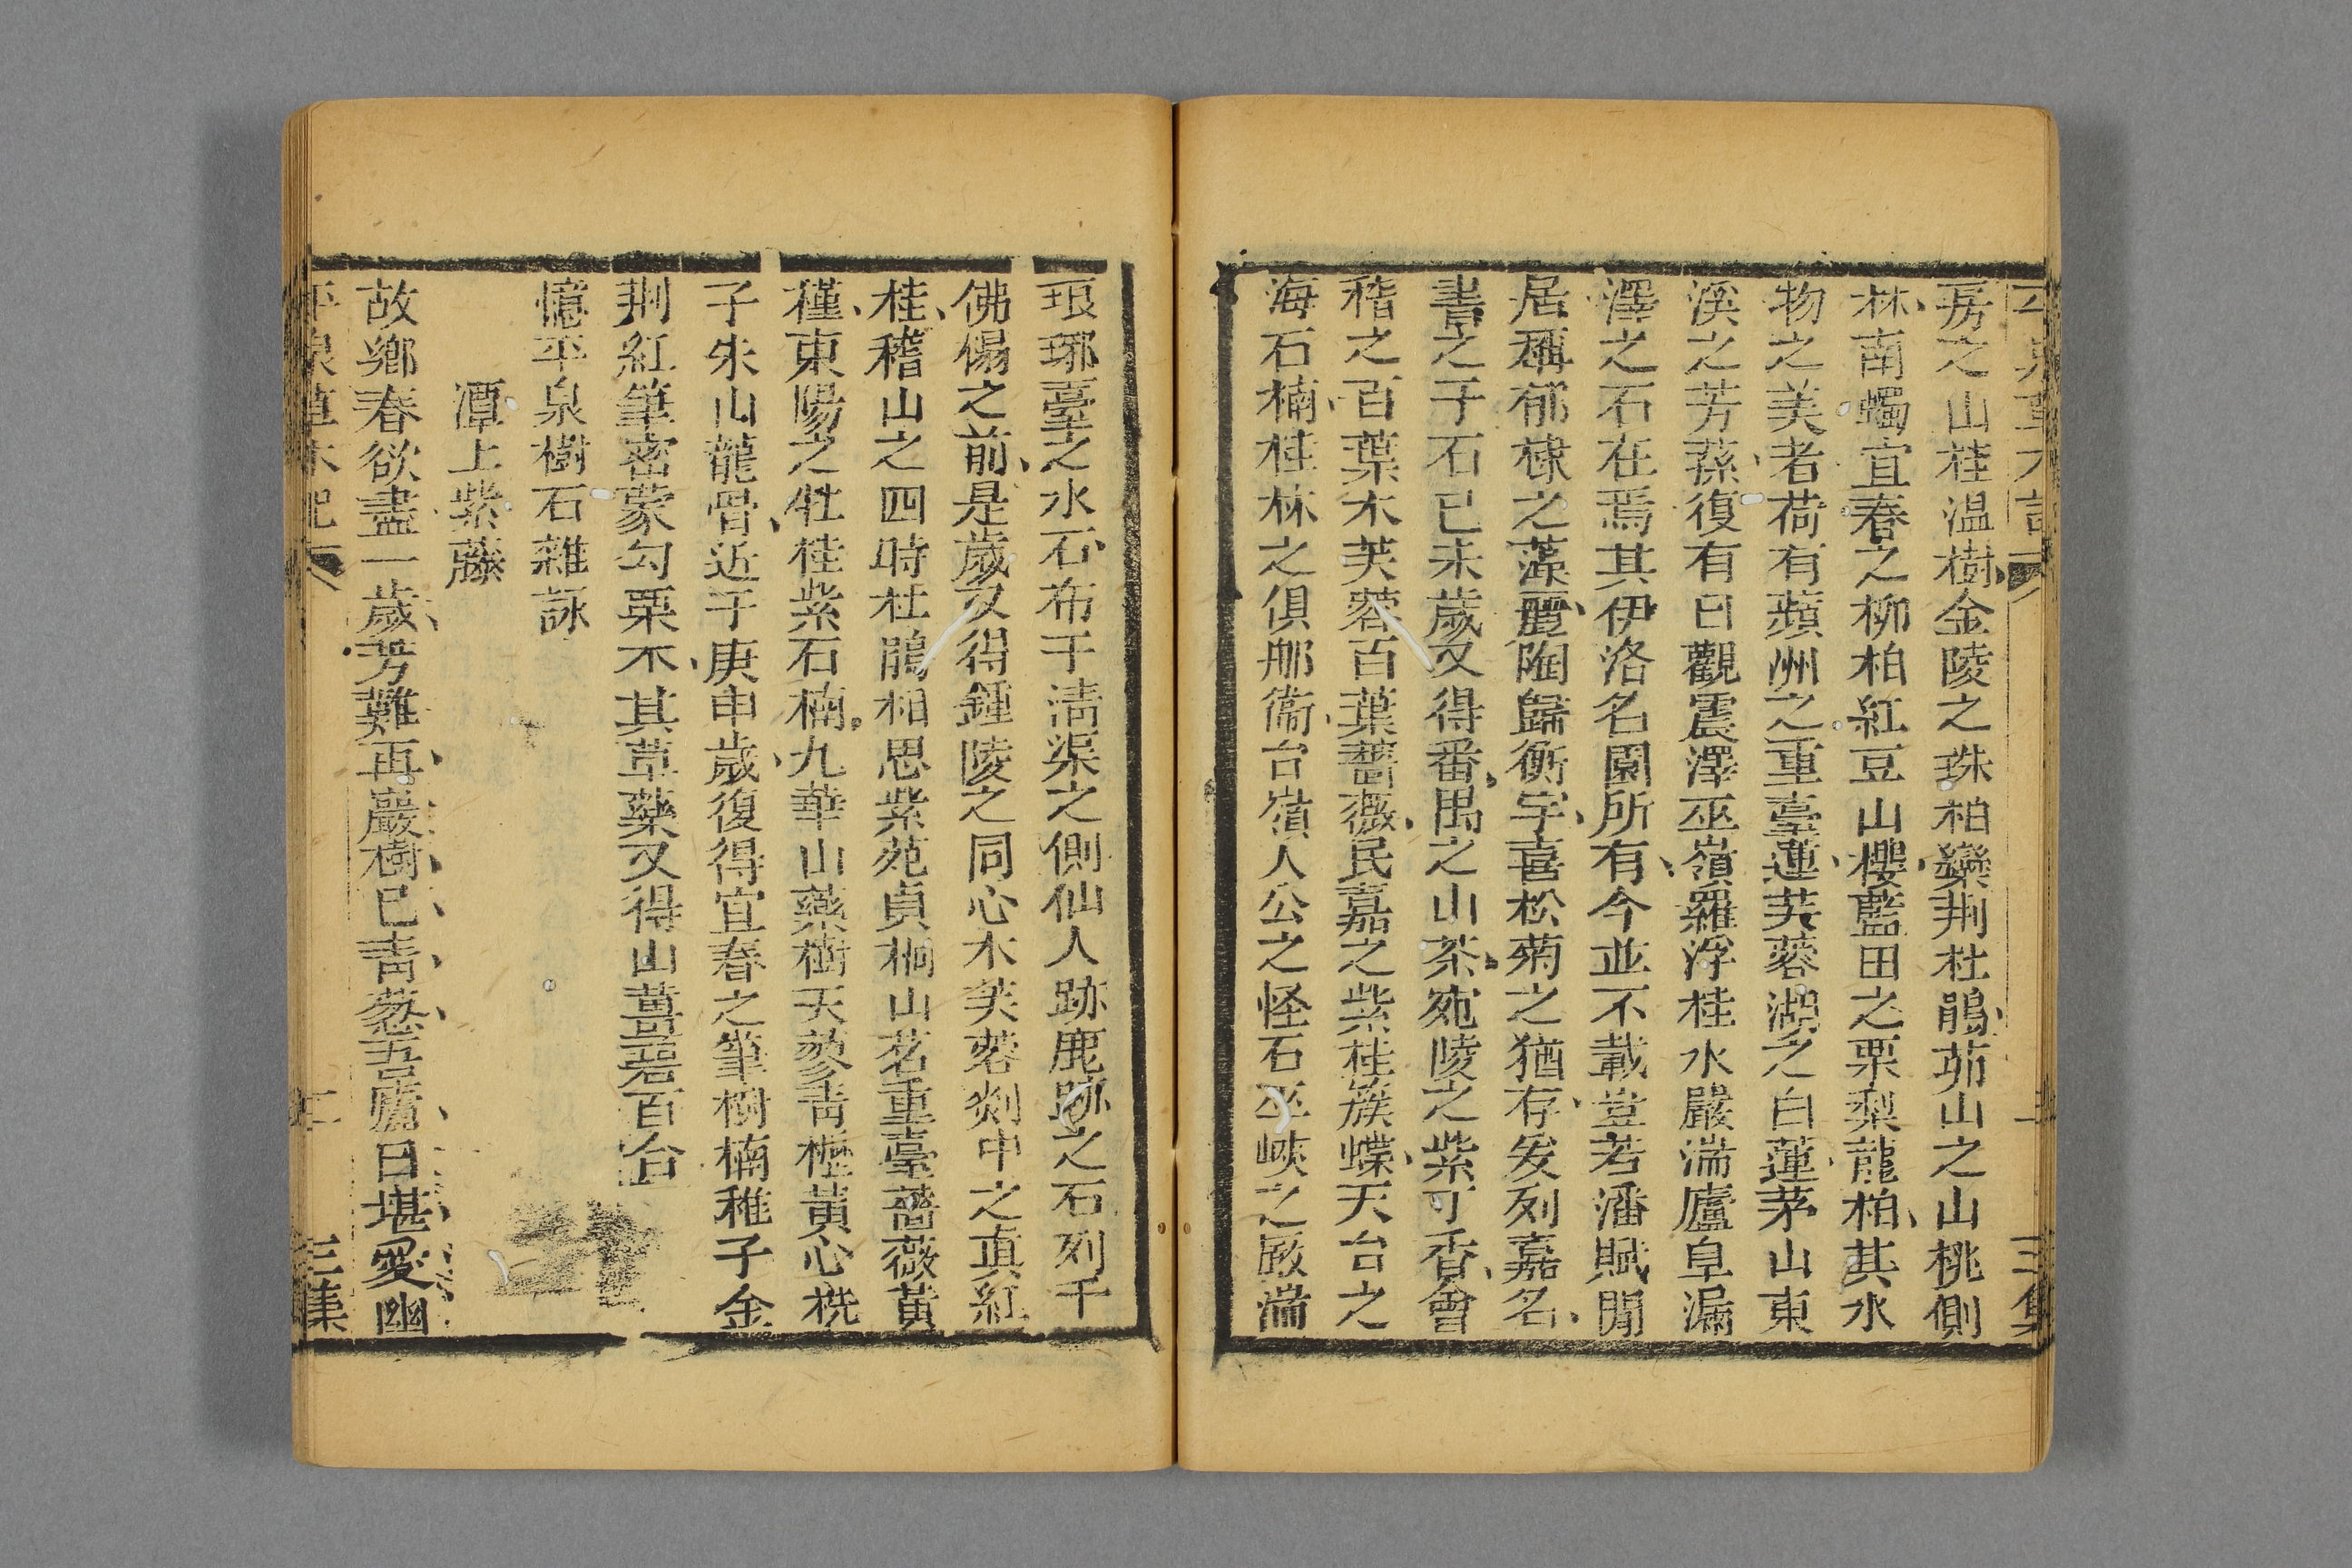 平泉草木記 二 三集
房之山桂温樹金陵之珠柏欒荆杜鵑茆山之山桃側
栢南燭宜春之柳柏紅豆山櫻藍田之栗梨龍柏其水
物之美者荷有蘋洲之重臺蓮芙蓉湖之白蓮茅山東
溪之芳蓀復有日觀震澤巫嶺羅浮桂水嚴湍廬阜漏
澤之石在焉其伊洛名園所有今並不載豈若潘賦閒
居稱郁棣之藻麗陶歸衡宇喜松菊之猶存爰列嘉名
書之于石已未歲又得番禺之山茶宛陵之紫丁香會
稽之百葉木芙蓉百葉薔薇民嘉之紫桂簇蝶天台之
海石楠桂林之俱郍衞台嶺八公之怪石巫峽之嚴湍
琅琊臺之水石布于淸渠之側仙人跡鹿跡之石列千
佛傷之前是歲又得鍾陵之同心木芙蓉剡中之眞紅
桂稽山之四時杜鵑相思紫苑貞桐山茗重臺薔薇黃
槿東陽之牡桂紫石楠九華山藥樹天蓼靑櫪黃心𣑱
子朱山龍骨近于庚申歲復得宜春之筆樹楠稚子金
荆紅筆密蒙勾栗木其草藥又得山薑碧百合
憶平泉樹石雜詠
潭上紫藤
故鄉春欲盡一歲芳難再巖樹已靑葱吾廬日堪愛幽
平泉草木記 二 三集